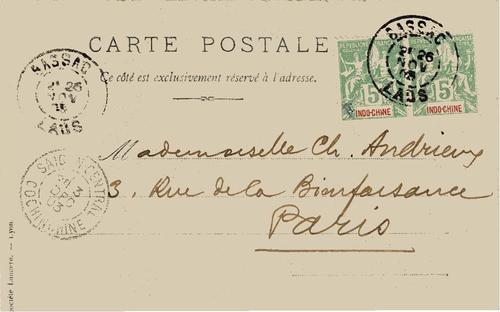 CARTE POSTALE
Ce côté est exclusivement réservé à l'adresse.
BASSAC
26
NOV
LAOS
BASSAC
26
NOV
LAOS
RÉPUBLIQUE FRANÇAISE
5
INDO-CHINE
5
INDO-CHINE
SAIGON CENTRAL
COCHINCHINE
Mademoiselle Ch. Andrieux
3, Rue de la Bienfaisance
Paris
Lyon.